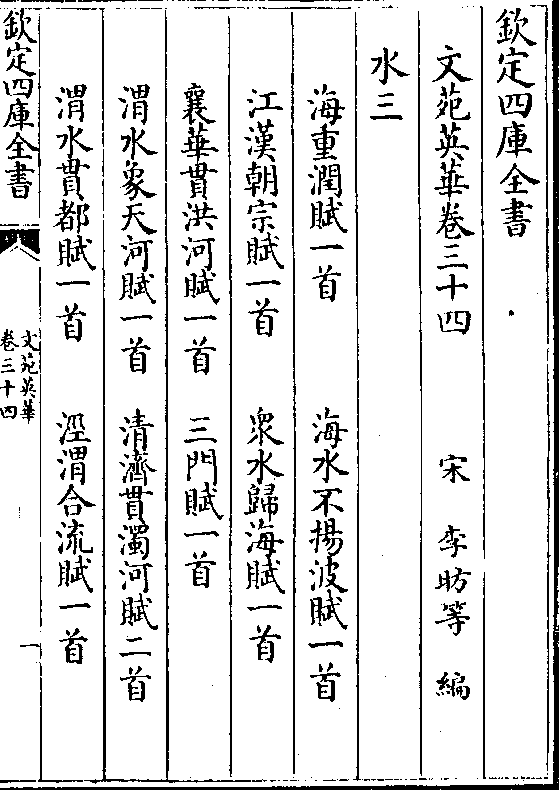 欽定四庫全書
文苑英華卷三十四 宋 李昉等 編
水三
海重潤賦一首 海水不揚波賦一首
江漢朝宗賦一首 衆水歸海賦一首
襄華貫洪河賦一首 三門賦一首
渭水象天河賦一首 清濟貫濁河賦二首
渭水貫都賦一首 涇渭合流賦一首
欽定四庫全書 文苑英華 卷三十四 一